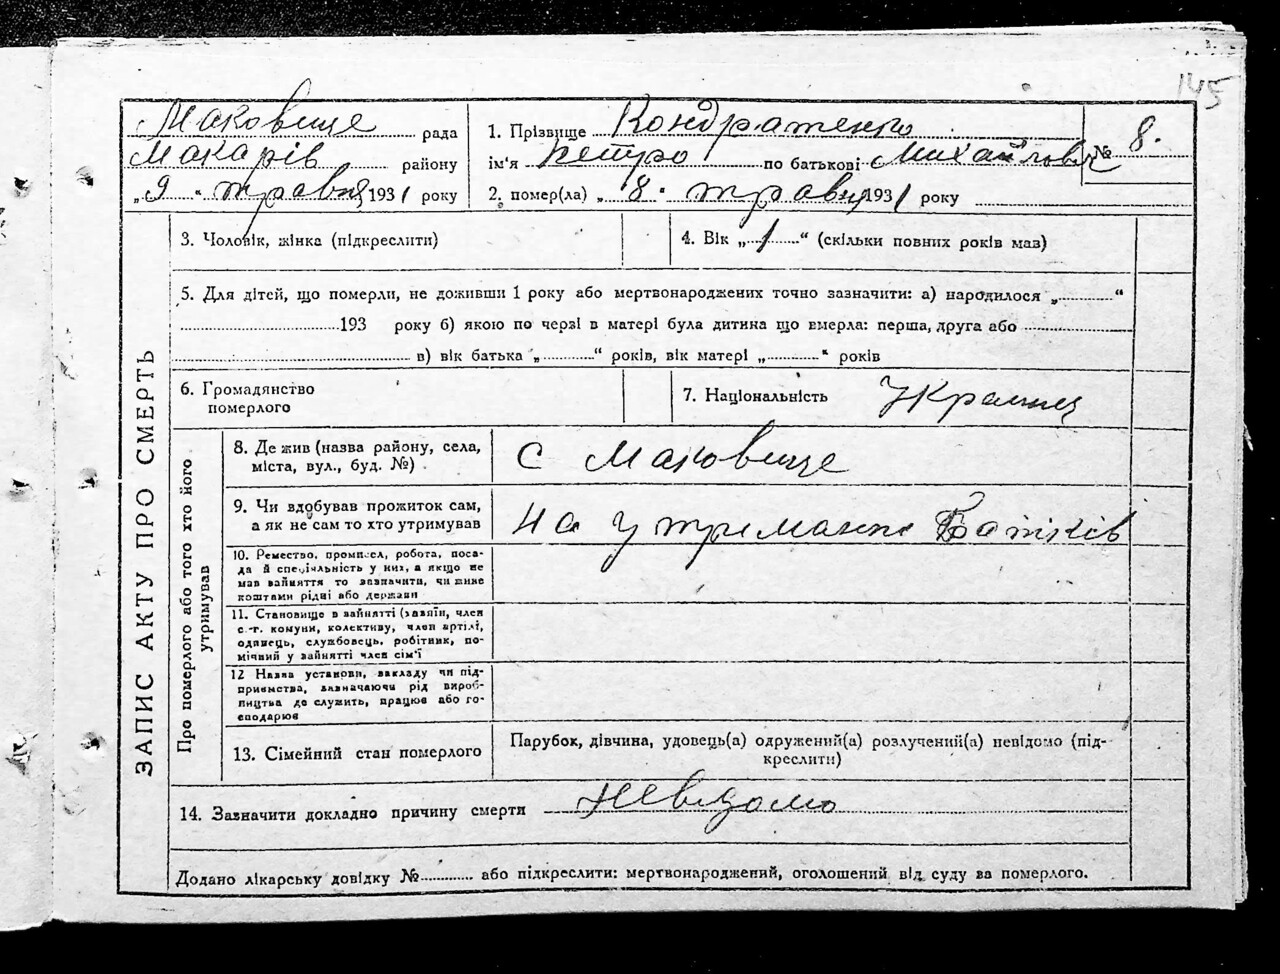 145
Маковище рада
Макарів району
„ 9 “ травня 1931 року
1. Прізвище Кондратенко
ім'я Петро по батькові Михайлович
2. помер(ла) „ 8 “ травня 1931 року
№ 8.
ЗАПИС АКТУ ПРО СМЕРТЬ
3. Чоловік, жінка (підкреслити)
4. Вік „ 1 “ (скільки повних років мав)
5. Для дітей, що померли, не доживши 1 року або мертвонароджених точно зазначити: а) народилося „ “
193 року б) якою по черзі в матері була дитина що вмерла: перша, друга або
в) вік батька „ “ років, вік матері „ “ років
6. Громадянство
померлого
7. Національність Украинц
Про померлого або того хто його
утримував
8. Де жив (назва району, села,
міста, вул., буд. №)
с Маковище
9. Чи вдобував прожиток сам,
а як не сам то хто утримував
На утриманні Батьків
10. Ремество, промисел, робота, поса-
да й спеціяльність у них, а якщо не
мав зайняття то зазначити, чи живе
коштами рідні або держави
11. Становище в зайнятті (хазяїн, член
с.-г. комуни, колективу, член артілі,
одинець, службовець, робітник, по-
мічний у зайнятті член сім'ї
12 Назва установи, закладу чи під-
приємства, зазначаючи рід вироб-
ництва де служить, працює або го-
сподарює
13. Сімейний стан померлого
Парубок, дівчина, удовець(а) одружений(а) розлучений(а) невідомо (під-
креслити)
14. Зазначити докладно причину смерти Невідомо
Додано лікарську довідку № або підкреслити: мертвонароджений, оголошений від суду за померлого.